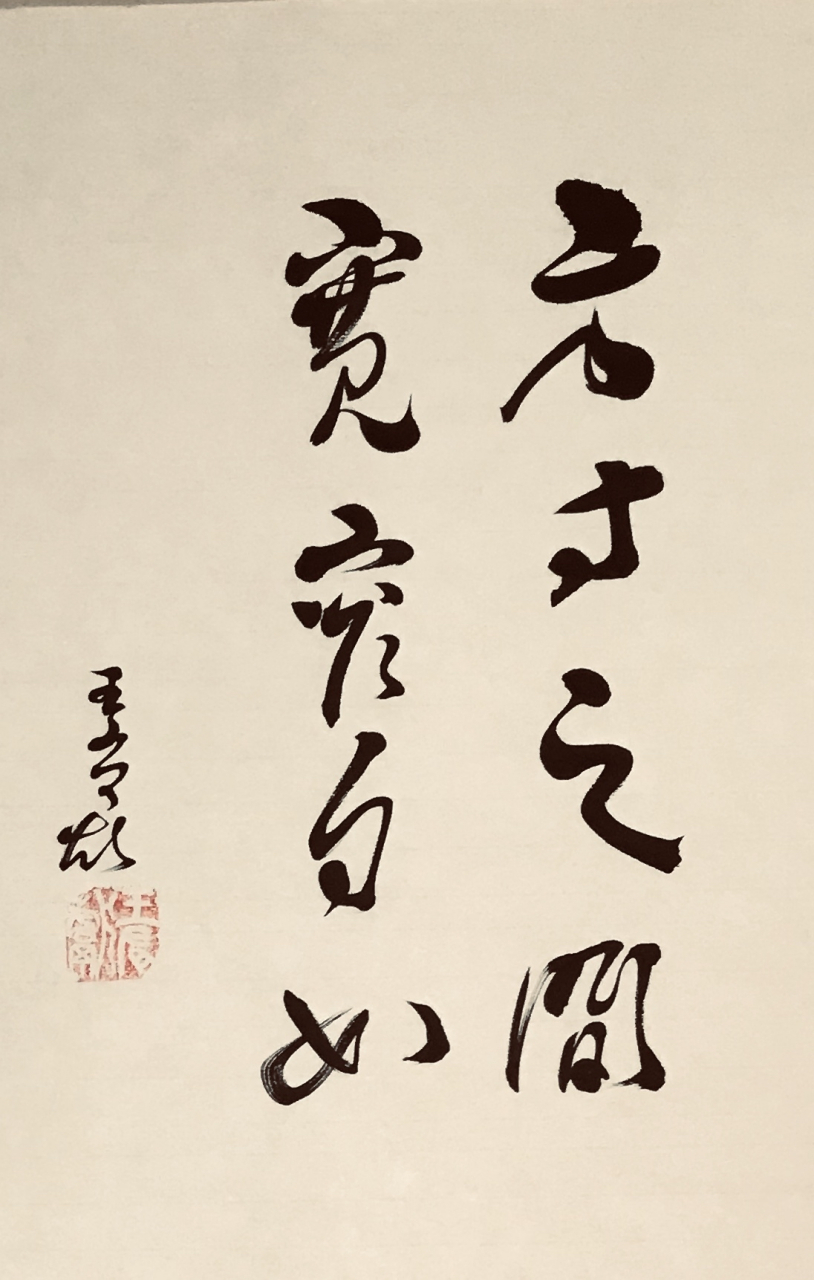 方寸之間
寬窄自如